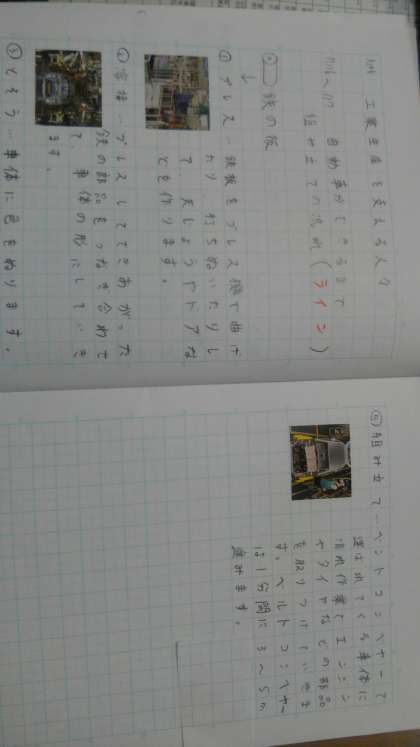 工業生産を支える人々
自動車ができるまで
組み立ての流れ(ライン)
鉄の板
↓
① プレス… 鉄板をプレス機で曲げ
たり、打ちぬいたりし
て、天じょうやドアな
どを作ります。
② 溶接…プレスしてできあがった
鉄の部品をつなぎ合わせ
て、車体の形にしていき
ます。
③ とそう…車体に色をぬります。
④ 組み立て…ベルトコンベヤーで
運ばれてくる車体に
流れ作業でエンジン
やタイヤなどの部品
を取りつけていきま
す。ベルトコンベヤー
は1分間に3~5m
進みます。